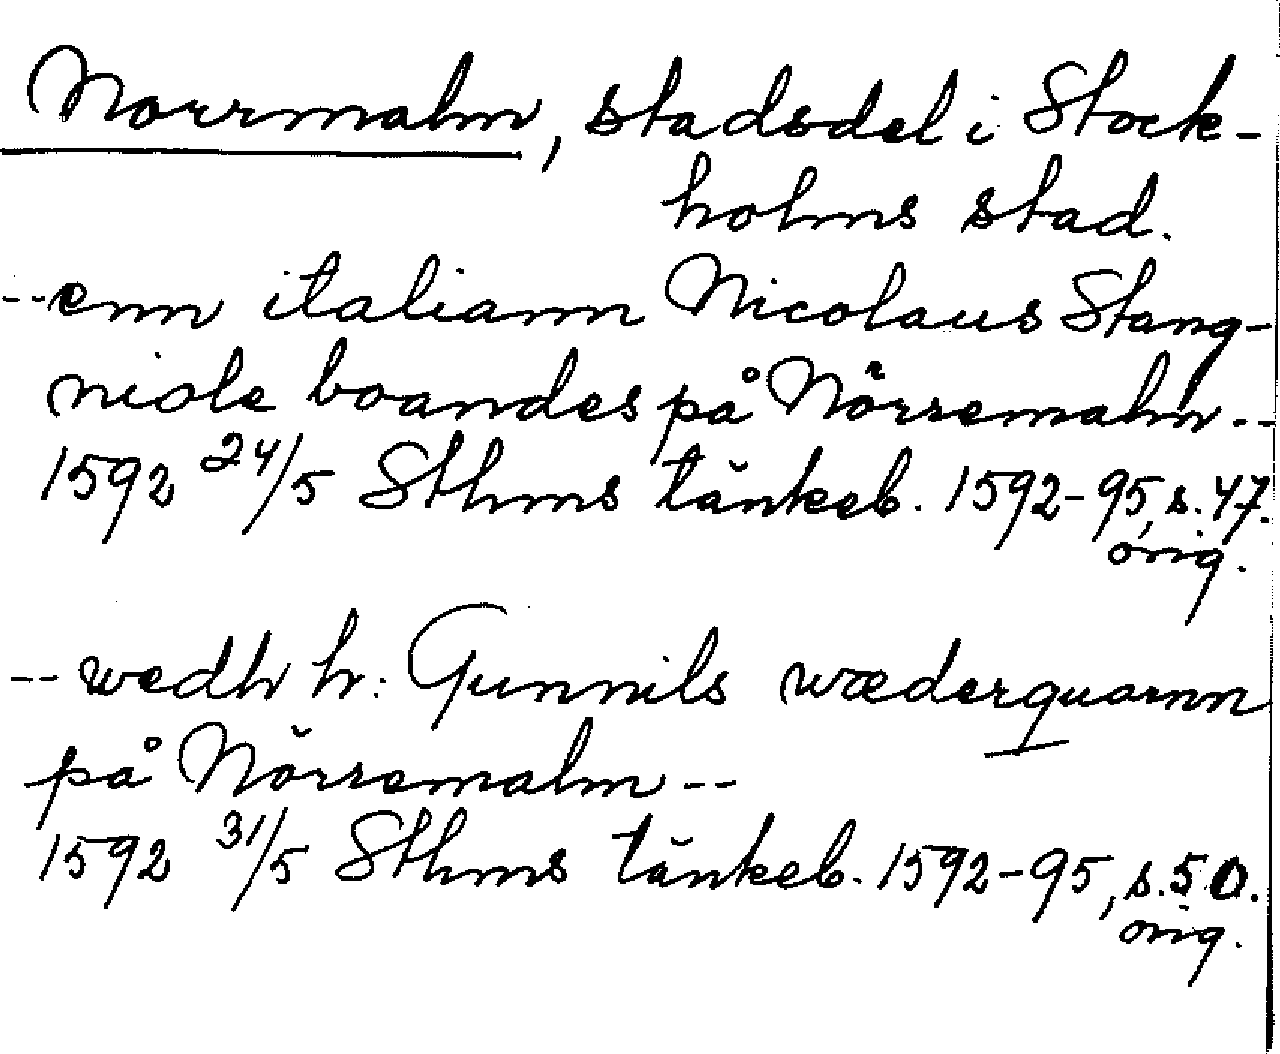 Norrmalm, stadsdel i Stock-
holms stad.
--enn italiann Nicolaus Stang-
niole boandes på Nörremalm--
1592 24/5 Sthms tänkeb. 1592-95, s. 47.
orig.
-- wedh hr: Gunnils wæderquarnn
på Nörremalm --
1592 31/5 Sthms tänkeb. 1592-95, s. 50.
orig.